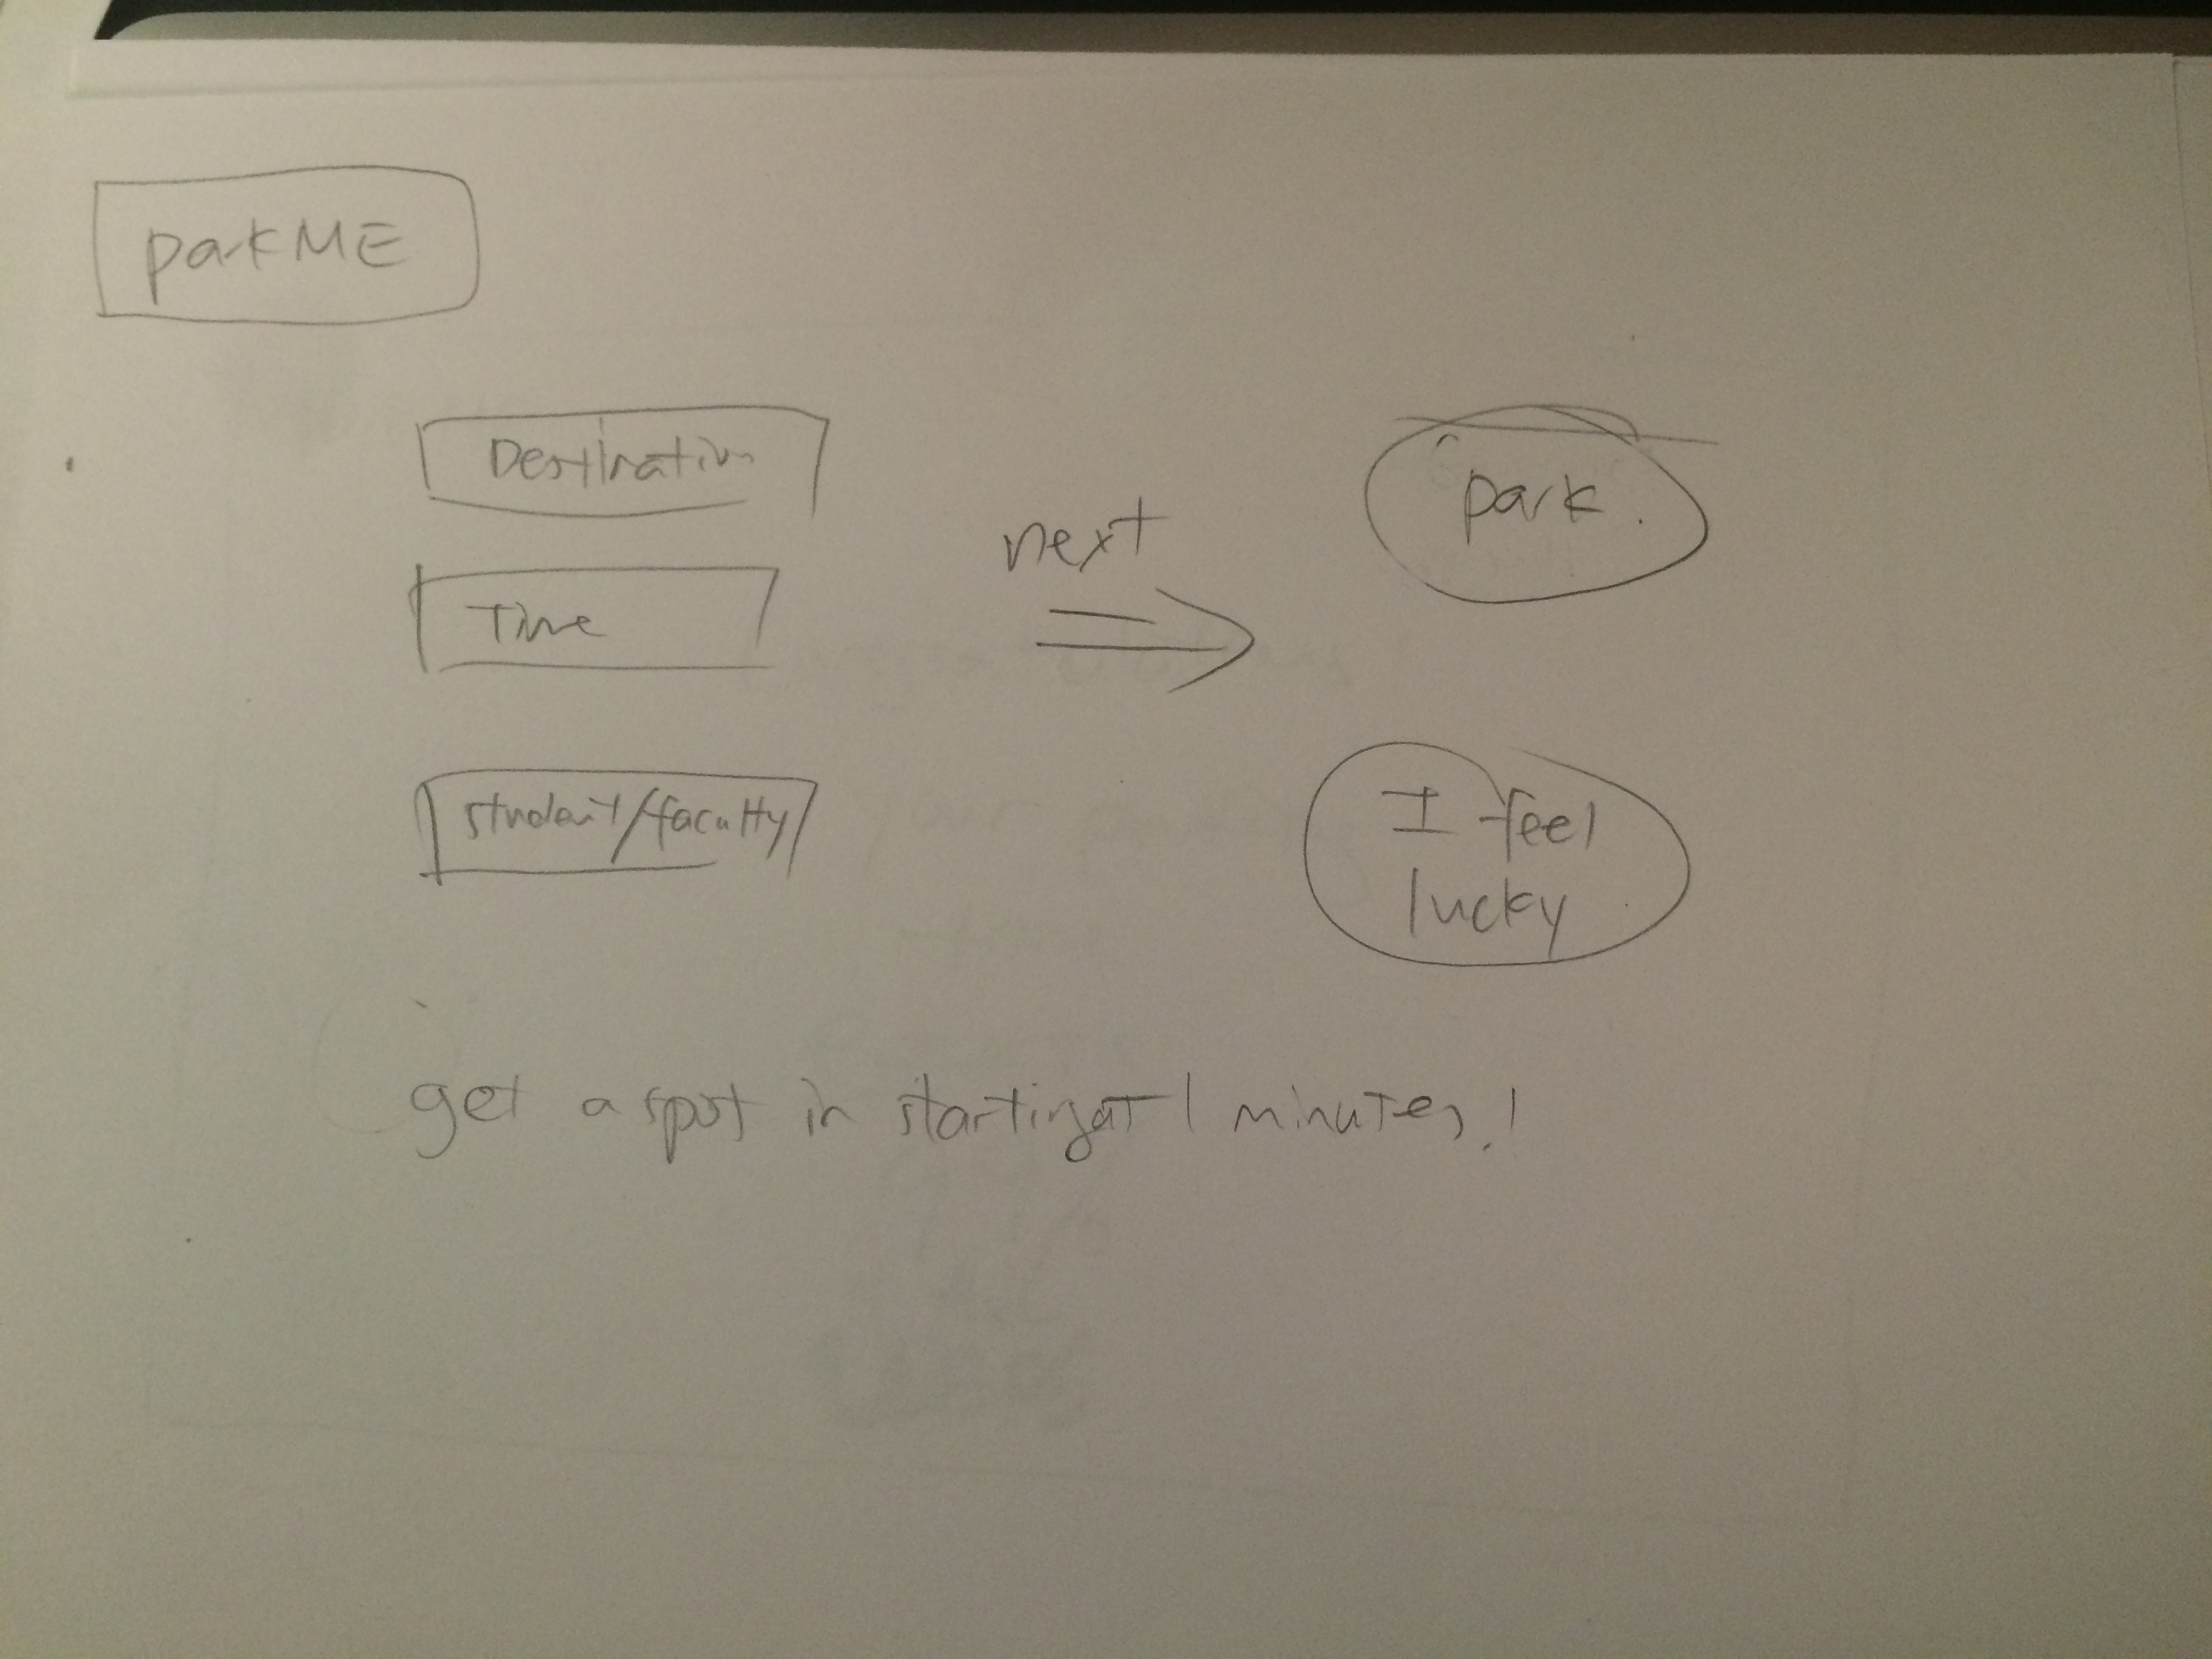 parkME
Destination
Time
student/faculty
next
park
I feel
lucky
get a spot in starting at 1 minutes!